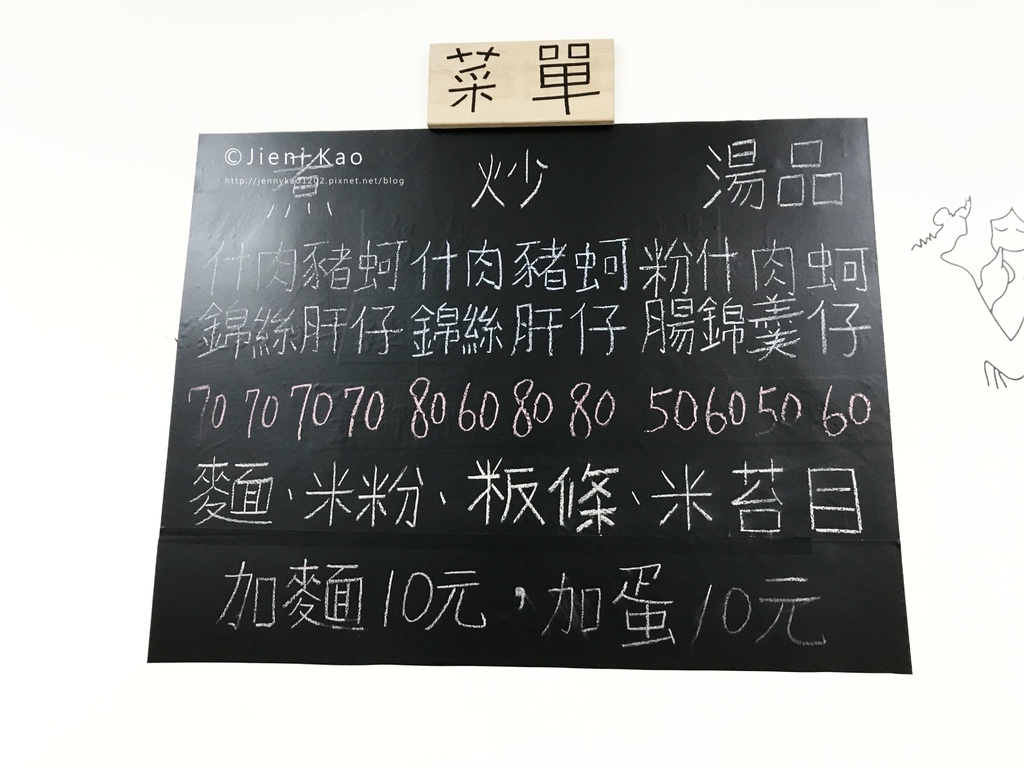 菜單
©Jieni Kao
http://jennykao1202.pixnet.net/blog
煮 炒 湯品
什肉豬蚵 什肉豬蚵 粉什肉蚵
錦絲肝仔 錦絲肝仔 腸錦羹仔
70 70 70 70 80 60 80 80 50 60 50 60
麵、米粉、粄條、米苔目
加麵10元,加蛋10元